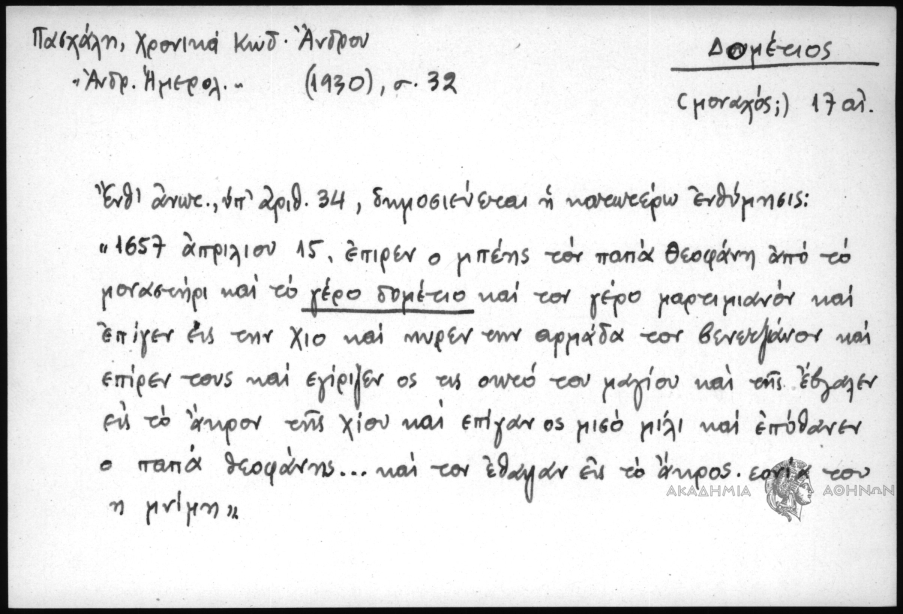 Πασχάλη, Χρονικά Κωδ. Ἄνδρου
"Ἀνδρ. Ἡμερολ." (1930), σ. 32
Δομέτιος
(μοναχός;) 17 αἰ.
Ἔνθ' ἀνωτ., ὑπ' ἀριθ. 34, δημοσιεύεται ἡ κατωτέρω ἐνθύμησις:
"1657 ἀπριλιου 15, ἐπιρεν ο μπέης τον παπά θεοφάνη ἀπό τό
μοναστήρι καί τό γέρο δομέτιο καί τον γέρο μαρτιμιανόν καί
ἐπίγεν εἰς την χιο καί ηυρεν την αρμάδα τον βενετζάνον καί
επίρεν τους καί εγίριζεν ος τις οκτό του μαγίου καί τῆς ἔβγαλεν
εἰς τό ἄκρον τῆς χίου καί επίγαν ος μισό μίλι καί ἐπόθανεν
ο παπά θεοφάνης... καί τον ἔθαψαν εἰς τό ἄκρος. εονία του
η μνίμη"
ΑΚΑΔΗΜΙΑ ΑΘΗΝΩΝ